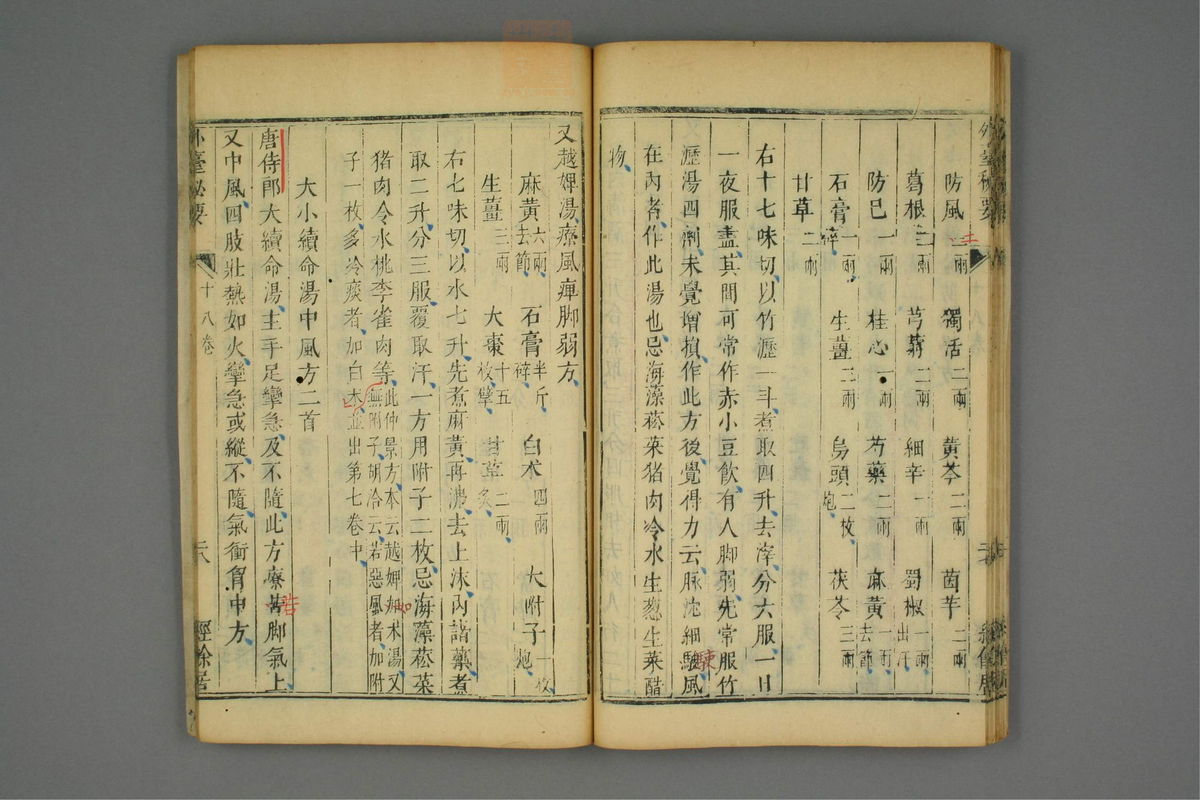 外臺秘要
防風二兩 獨活二兩 黃芩二兩 茵芋二兩
葛根二兩 芎藭二兩 細辛一兩 蜀椒一兩出汗
防巳一兩 桂心一兩 芍藥二兩 麻黃一兩去節
石膏一兩碎 生薑三兩 烏頭二枚炮 茯苓三兩
甘草二兩
右十七味切以竹瀝一斗煮取四升去滓分六服一日
一夜服盡其間可常作赤小豆飲有人脚弱先常服竹
瀝湯四劑未覺增損作此方後覺得力云脉沈細駛風
在內者作此湯也忌海藻菘菜猪肉冷水生葱生菜醋
物
又越婢湯療風痺脚弱方
麻黃六兩去節 石膏半斤碎 白术四兩 大附子一枚炮
生薑三兩 大棗十五枚擘 甘草二兩炙
右七味切以水七升先煮麻黃再沸去上沫內諸藥煮
取二升分三服覆取汗一方用附子二枚忌海藻菘菜
猪肉令水桃李雀肉等此仲景方本云越婢加术湯又無附子胡洽云若惡風者加附
子一枚多冷痰者加白术並出第七卷中
大小續命湯中風方二首
唐侍郎大續命湯主手足攣急及不隨此方療苦脚氣上
又中風四肢壯熱如火攣急或縱不隨氣衝胷中方
外臺秘要 十八卷 二八 經餘居